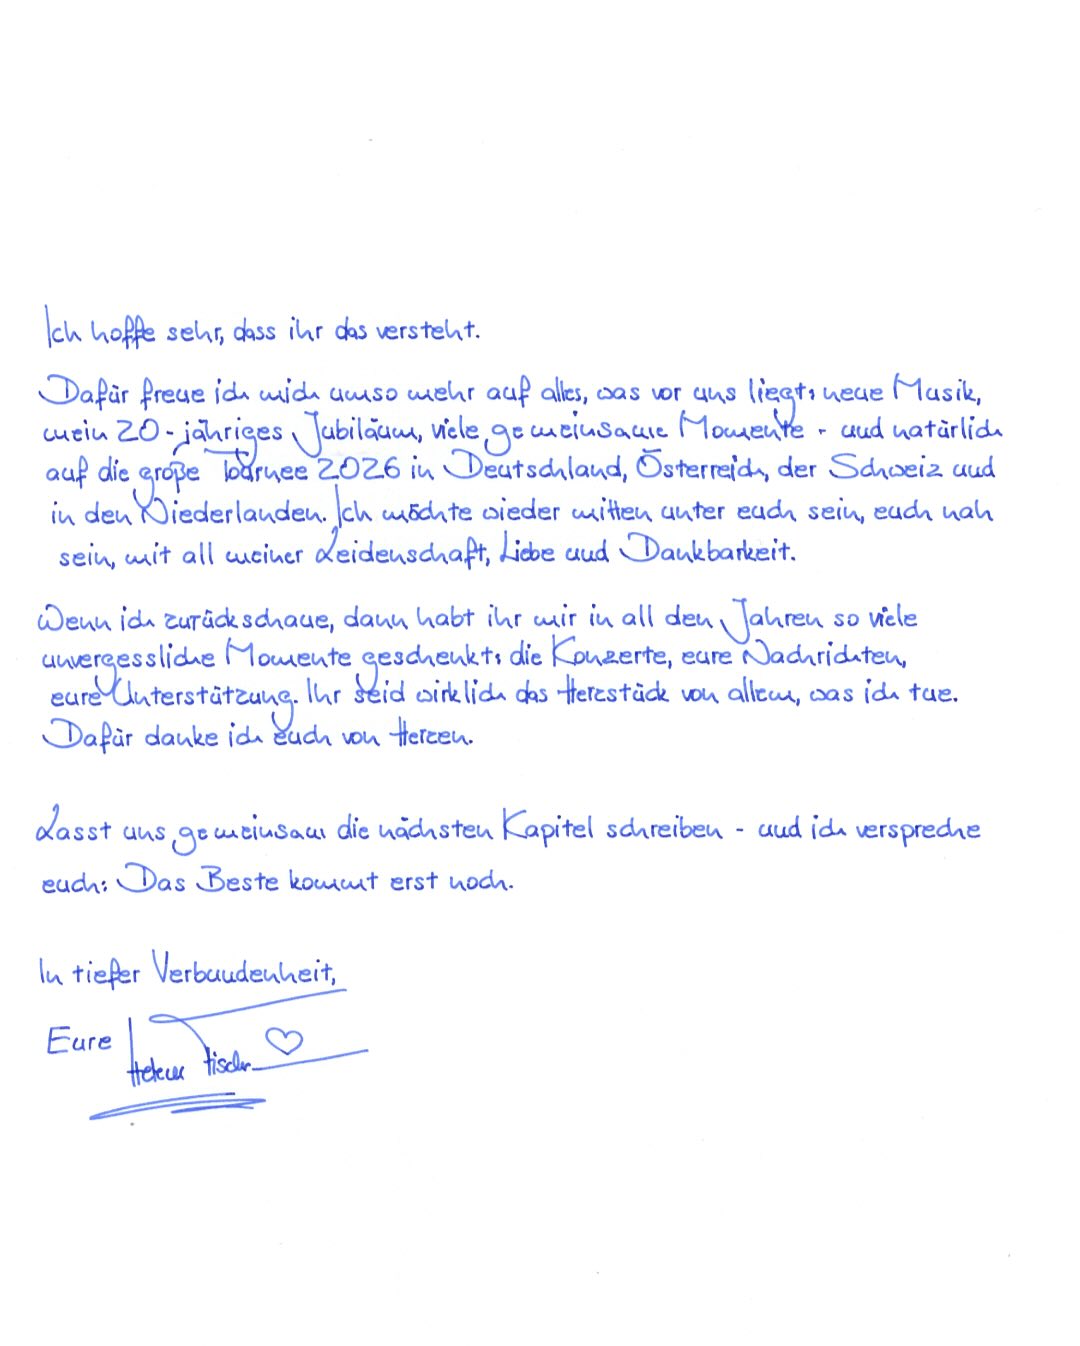 Ich hoffe sehr, dass ihr das versteht.
Dafür freue ich mich umso mehr auf alles, was vor uns liegt: neue Musik,
mein 20-jähriges Jubiläum, viele gemeinsame Momente - und natürlich
auf die große Tournee 2026 in Deutschland, Österreich, der Schweiz und
in den Niederlanden. Ich möchte wieder mitten unter euch sein, euch nah
sein, mit all meiner Leidenschaft, Liebe und Dankbarkeit.
Wenn ich zurückschaue, dann habt ihr mir in all den Jahren so viele
unvergessliche Momente geschenkt: die Konzerte, eure Nachrichten,
eure Unterstützung. Ihr seid wirklich das Herzstück von allem, was ich tue.
Dafür danke ich euch von Herzen.
Lasst uns gemeinsam die nächsten Kapitel schreiben - und ich verspreche
euch: Das Beste kommt erst noch.
In tiefer Verbundenheit,
Eure Helene Fischer